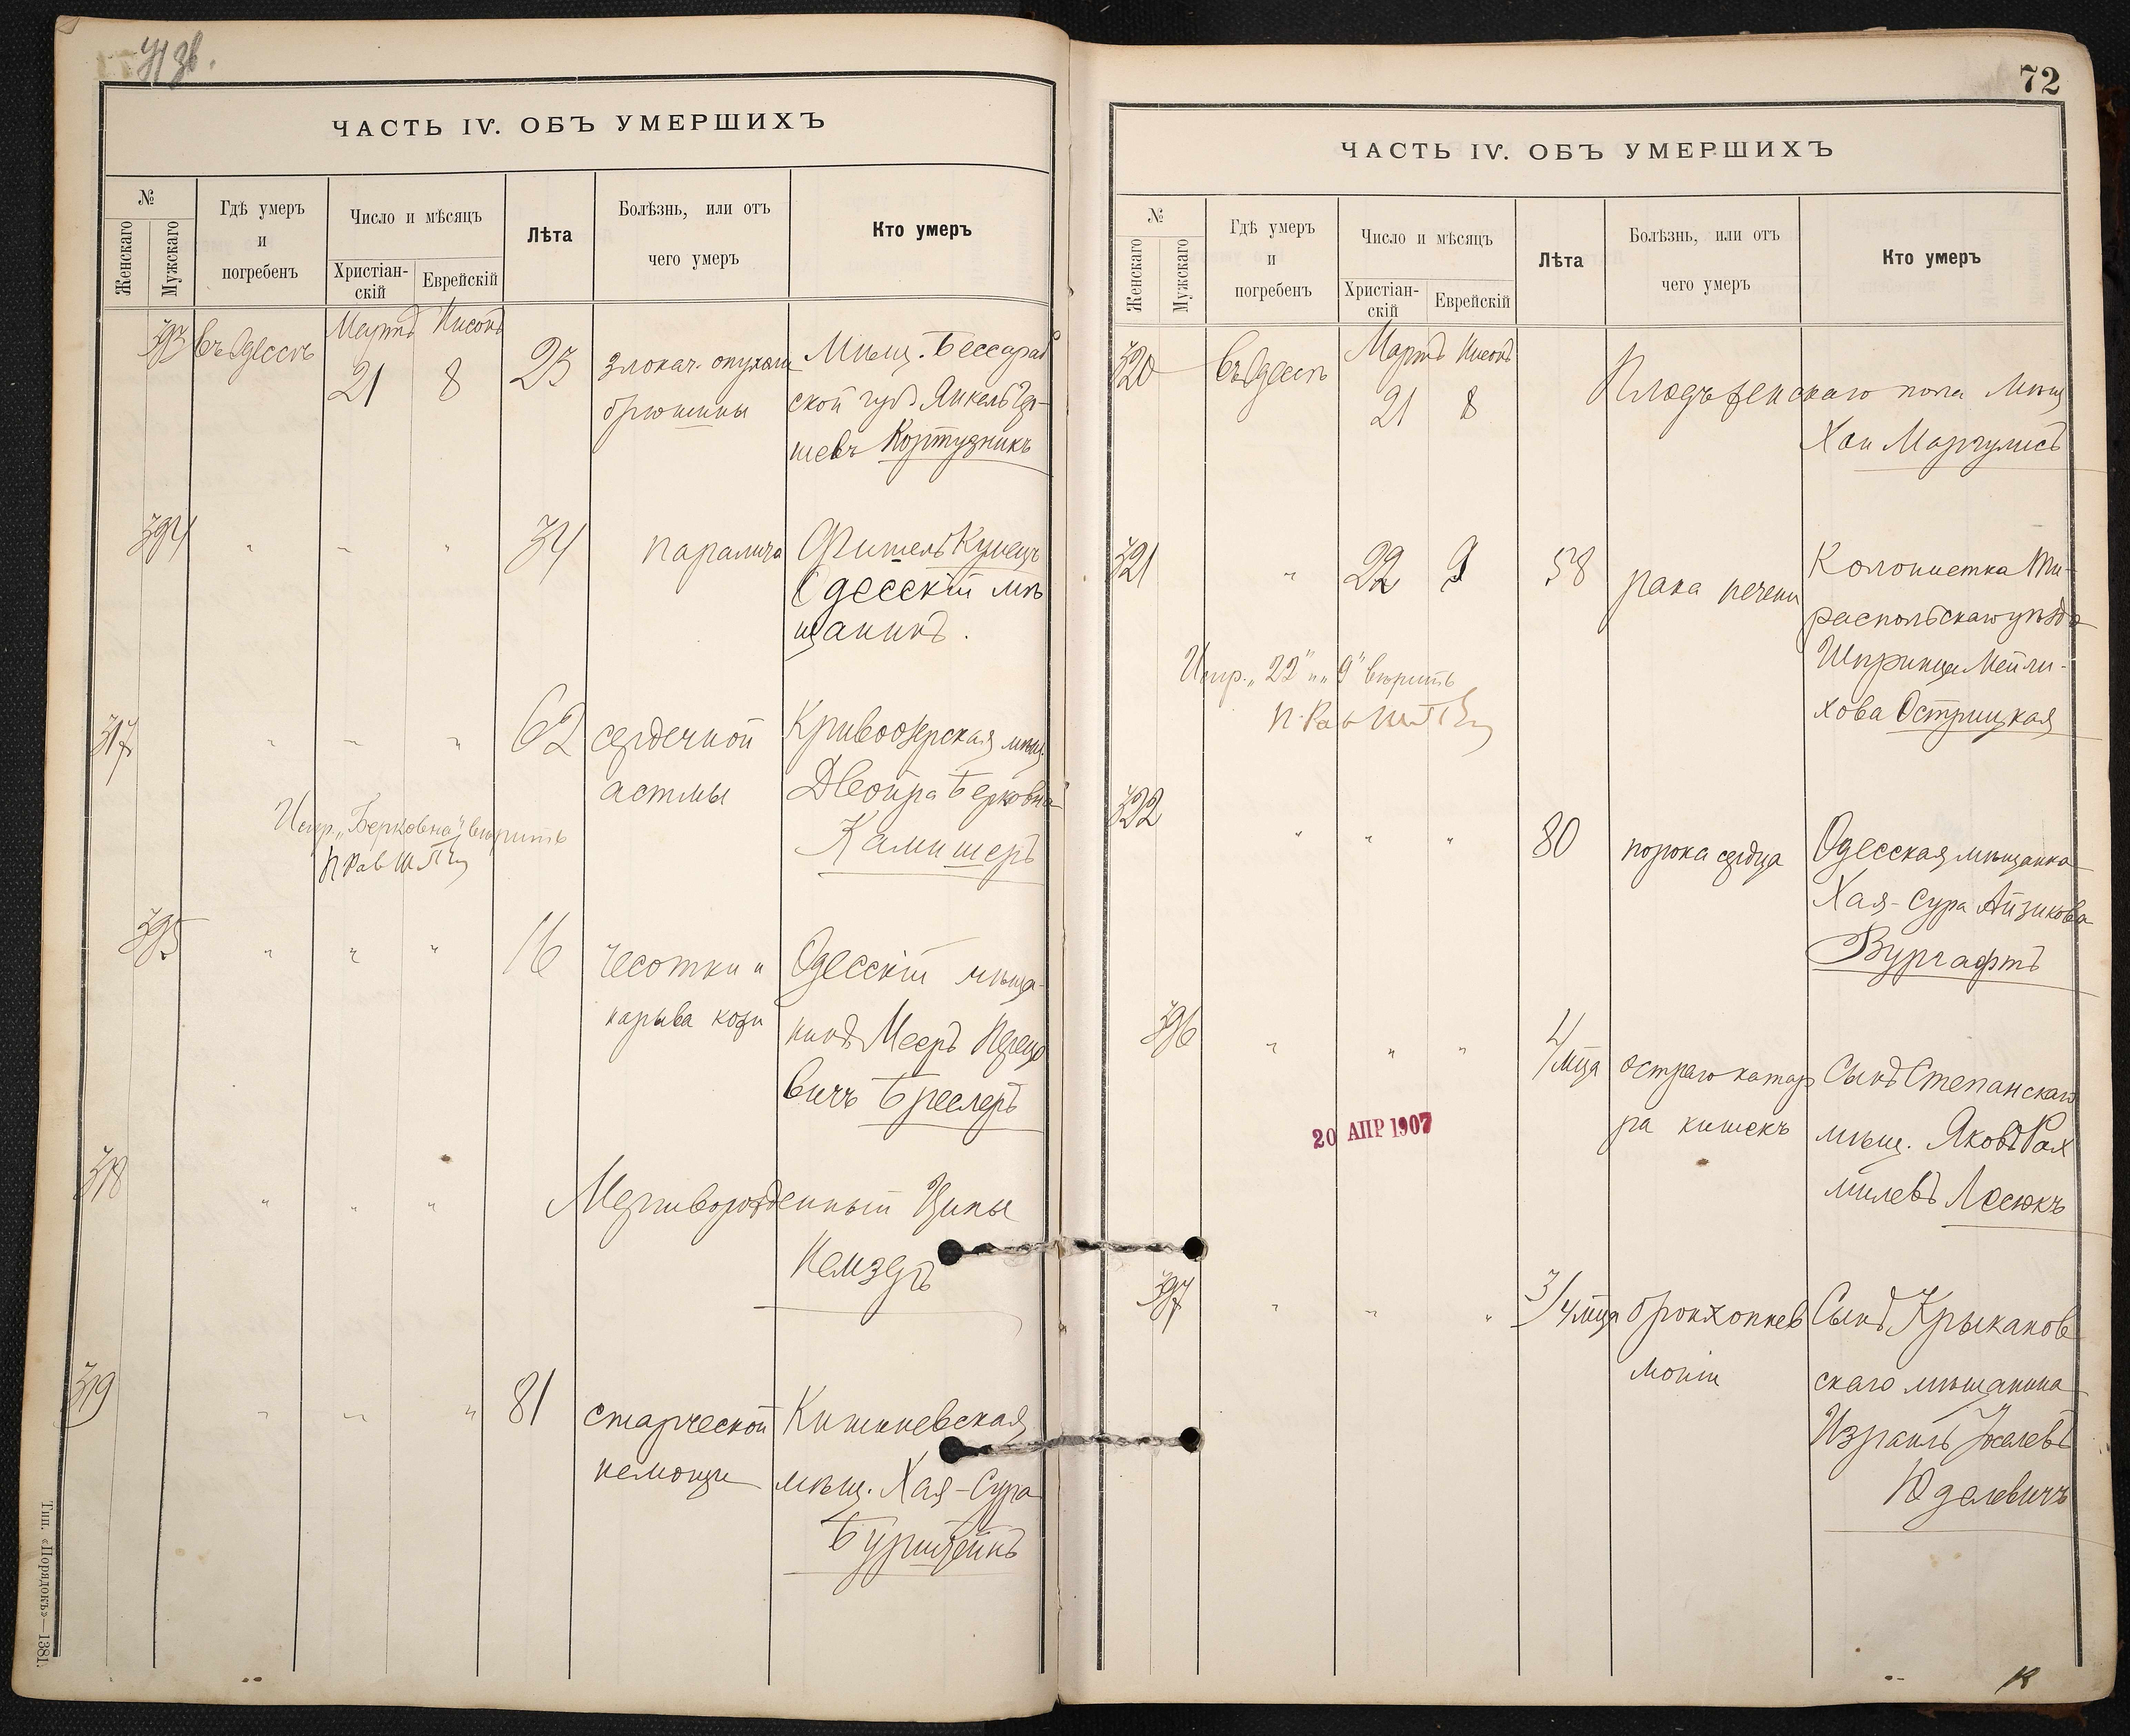 71 об.
ЧАСТЬ IV. ОБЪ УМЕРШИХЪ
№
Женскаго
Мужскаго
Гдѣ умеръ
и
погребенъ
Число и мѣсяцъ
Христіан-
скій
Еврейскій
Лѣта
Болѣзнь, или отъ
чего умеръ
Кто умеръ
393 въ Одессѣ Мартъ Нисонъ
21 8 23 злокач. опухоли Мѣщ. Бессараб
брюшины ской губ. Янкель
шевъ Кортузникъ
394 " " " 34 паралича Фишель Купецъ
Одесскій мѣ
щанинъ.
317 " " " 62 сердечной Кривоозерская мѣщ.
астмы Двойра Берковна
Испр. „Берковна" вѣрить Камишеръ
395 " " " 16 чесотки и Одесскій мѣща-
нарыва кожи нинъ Мееръ Перецо
вичъ Бреслеръ
318 " " " Мертворожденный Ципы
Немзеръ
319 " " " 81 старческой Кишиневская
немощи мѣщ. Хая-Сура
Бурштейнъ
Тип. «Порядокъ»—1381.
72
ЧАСТЬ IV. ОБЪ УМЕРШИХЪ
№
Женскаго
Мужскаго
Гдѣ умеръ
и
погребенъ
Число и мѣсяцъ
Христіан-
скій
Еврейскій
Лѣта
Болѣзнь, или отъ
чего умеръ
Кто умеръ
320 въ Одессѣ Мартъ Нисонъ
21 8 Плодъ женскаго пола мѣщ
Хаи Маргулисъ
321 " 22 9 58 рака печени Колонистка Ти-
распольскаго уѣзда
Испр. „22" и „9" вѣрить Шпринца Мейли-
хова Острицкая
322 " " " 80 порока сердца Одесская мѣщанка
Хая-Сура Айзикова
Вургафтъ
396 " " " 4 мца остраго катар Сынъ Степанскаго
ра кишекъ мѣщ. Яковъ Рах
милевъ Лосюкъ
20 АПР 1907
397 " " " 3/4 мца бронхопнев Сынъ Крыжанов
моніи скаго мѣщанина
Израиль Іоселевъ
Юделевичъ